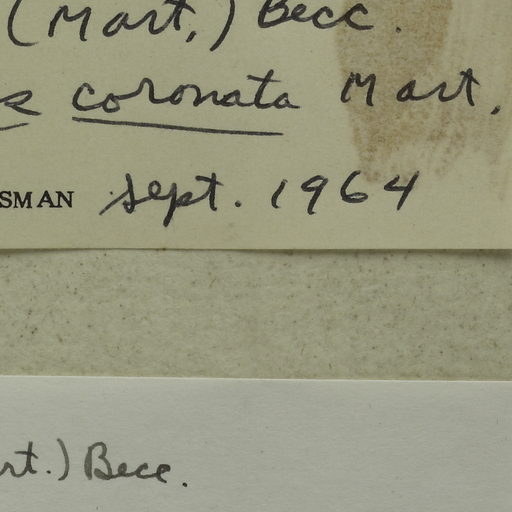 (Mart.) Becc.
s coronata Mart.
SMAN Sept. 1964
rt.) Becc.